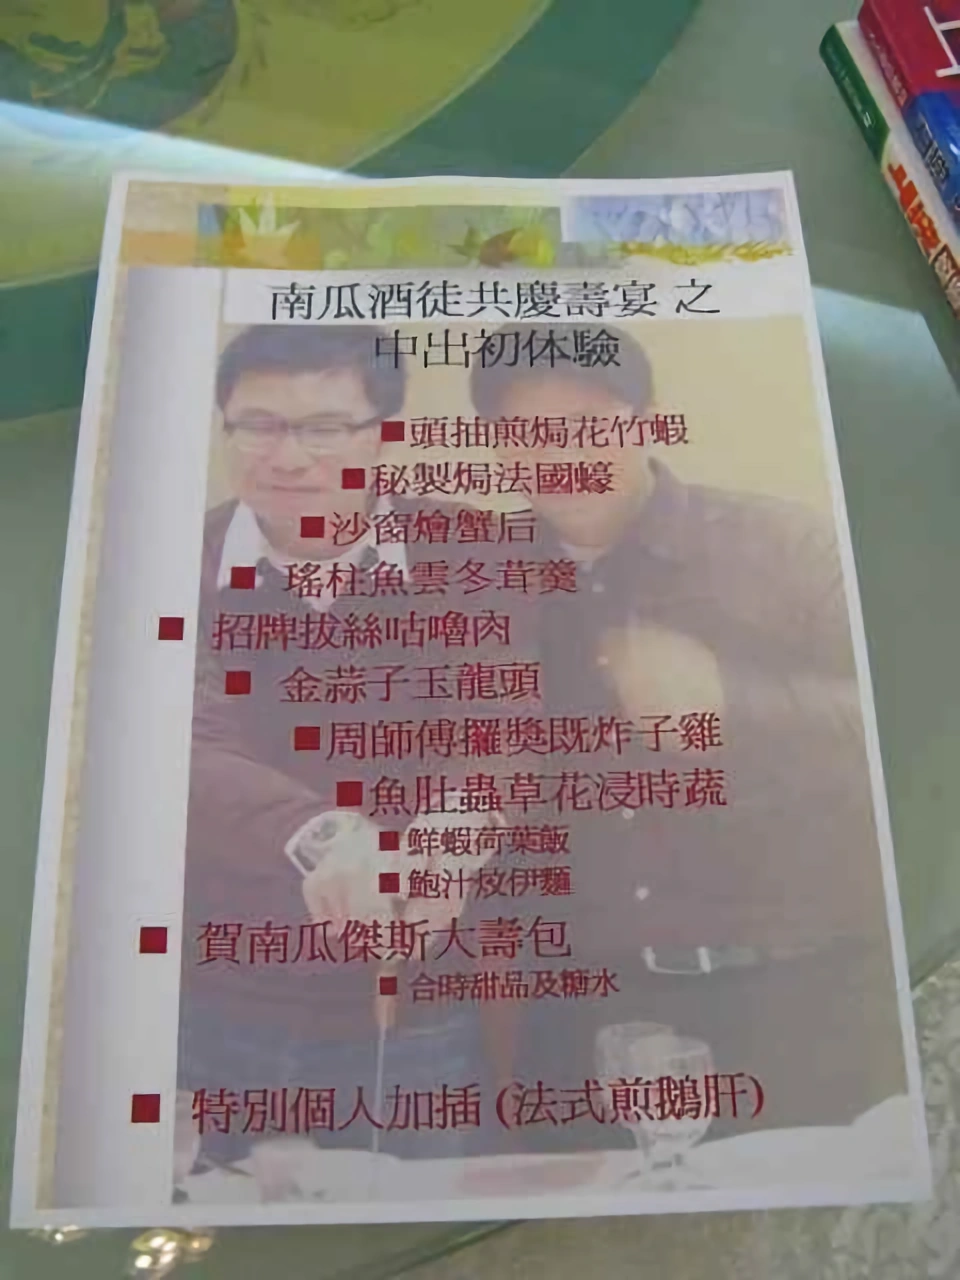 南瓜酒徒共慶壽宴 之
中出初体驗
■頭抽煎焗花竹蝦
■秘製焗法國蠔
■沙窩燴蟹后
■ 瑤柱魚雲冬茸羹
■ 招牌拔絲咕嚕肉
■ 金蒜子玉龍頭
■周師傅攞獎既炸子雞
■魚肚蟲草花浸時蔬
■ 鮮蝦荷葉飯
■ 鮑汁炆伊麵
■ 賀南瓜傑斯大壽包
■ 合時甜品及糖水
■ 特別個人加插 (法式煎鵝肝)